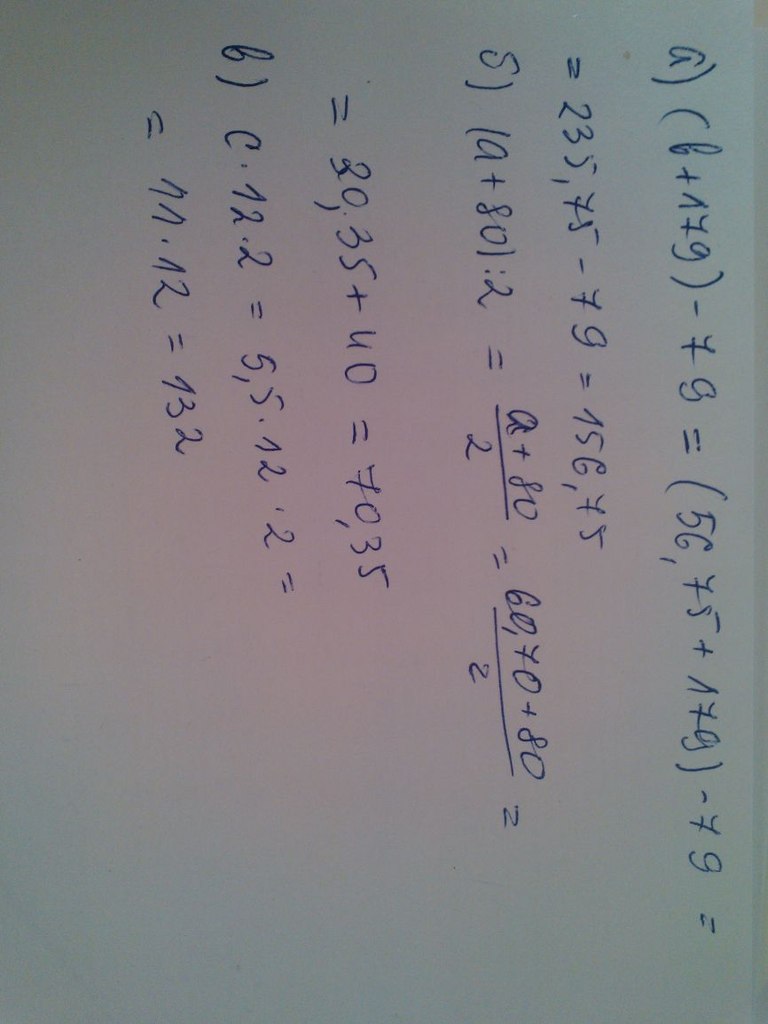 а) (b+179)-79=(56,75+179)-79=
=235,75-79=156,75
б) (a+80):2 = \frac{a+80}{2} = \frac{60,70+80}{2} =
= 30,35+40=70,35
в) c·12·2=5,5·12·2=
= 11·12=132